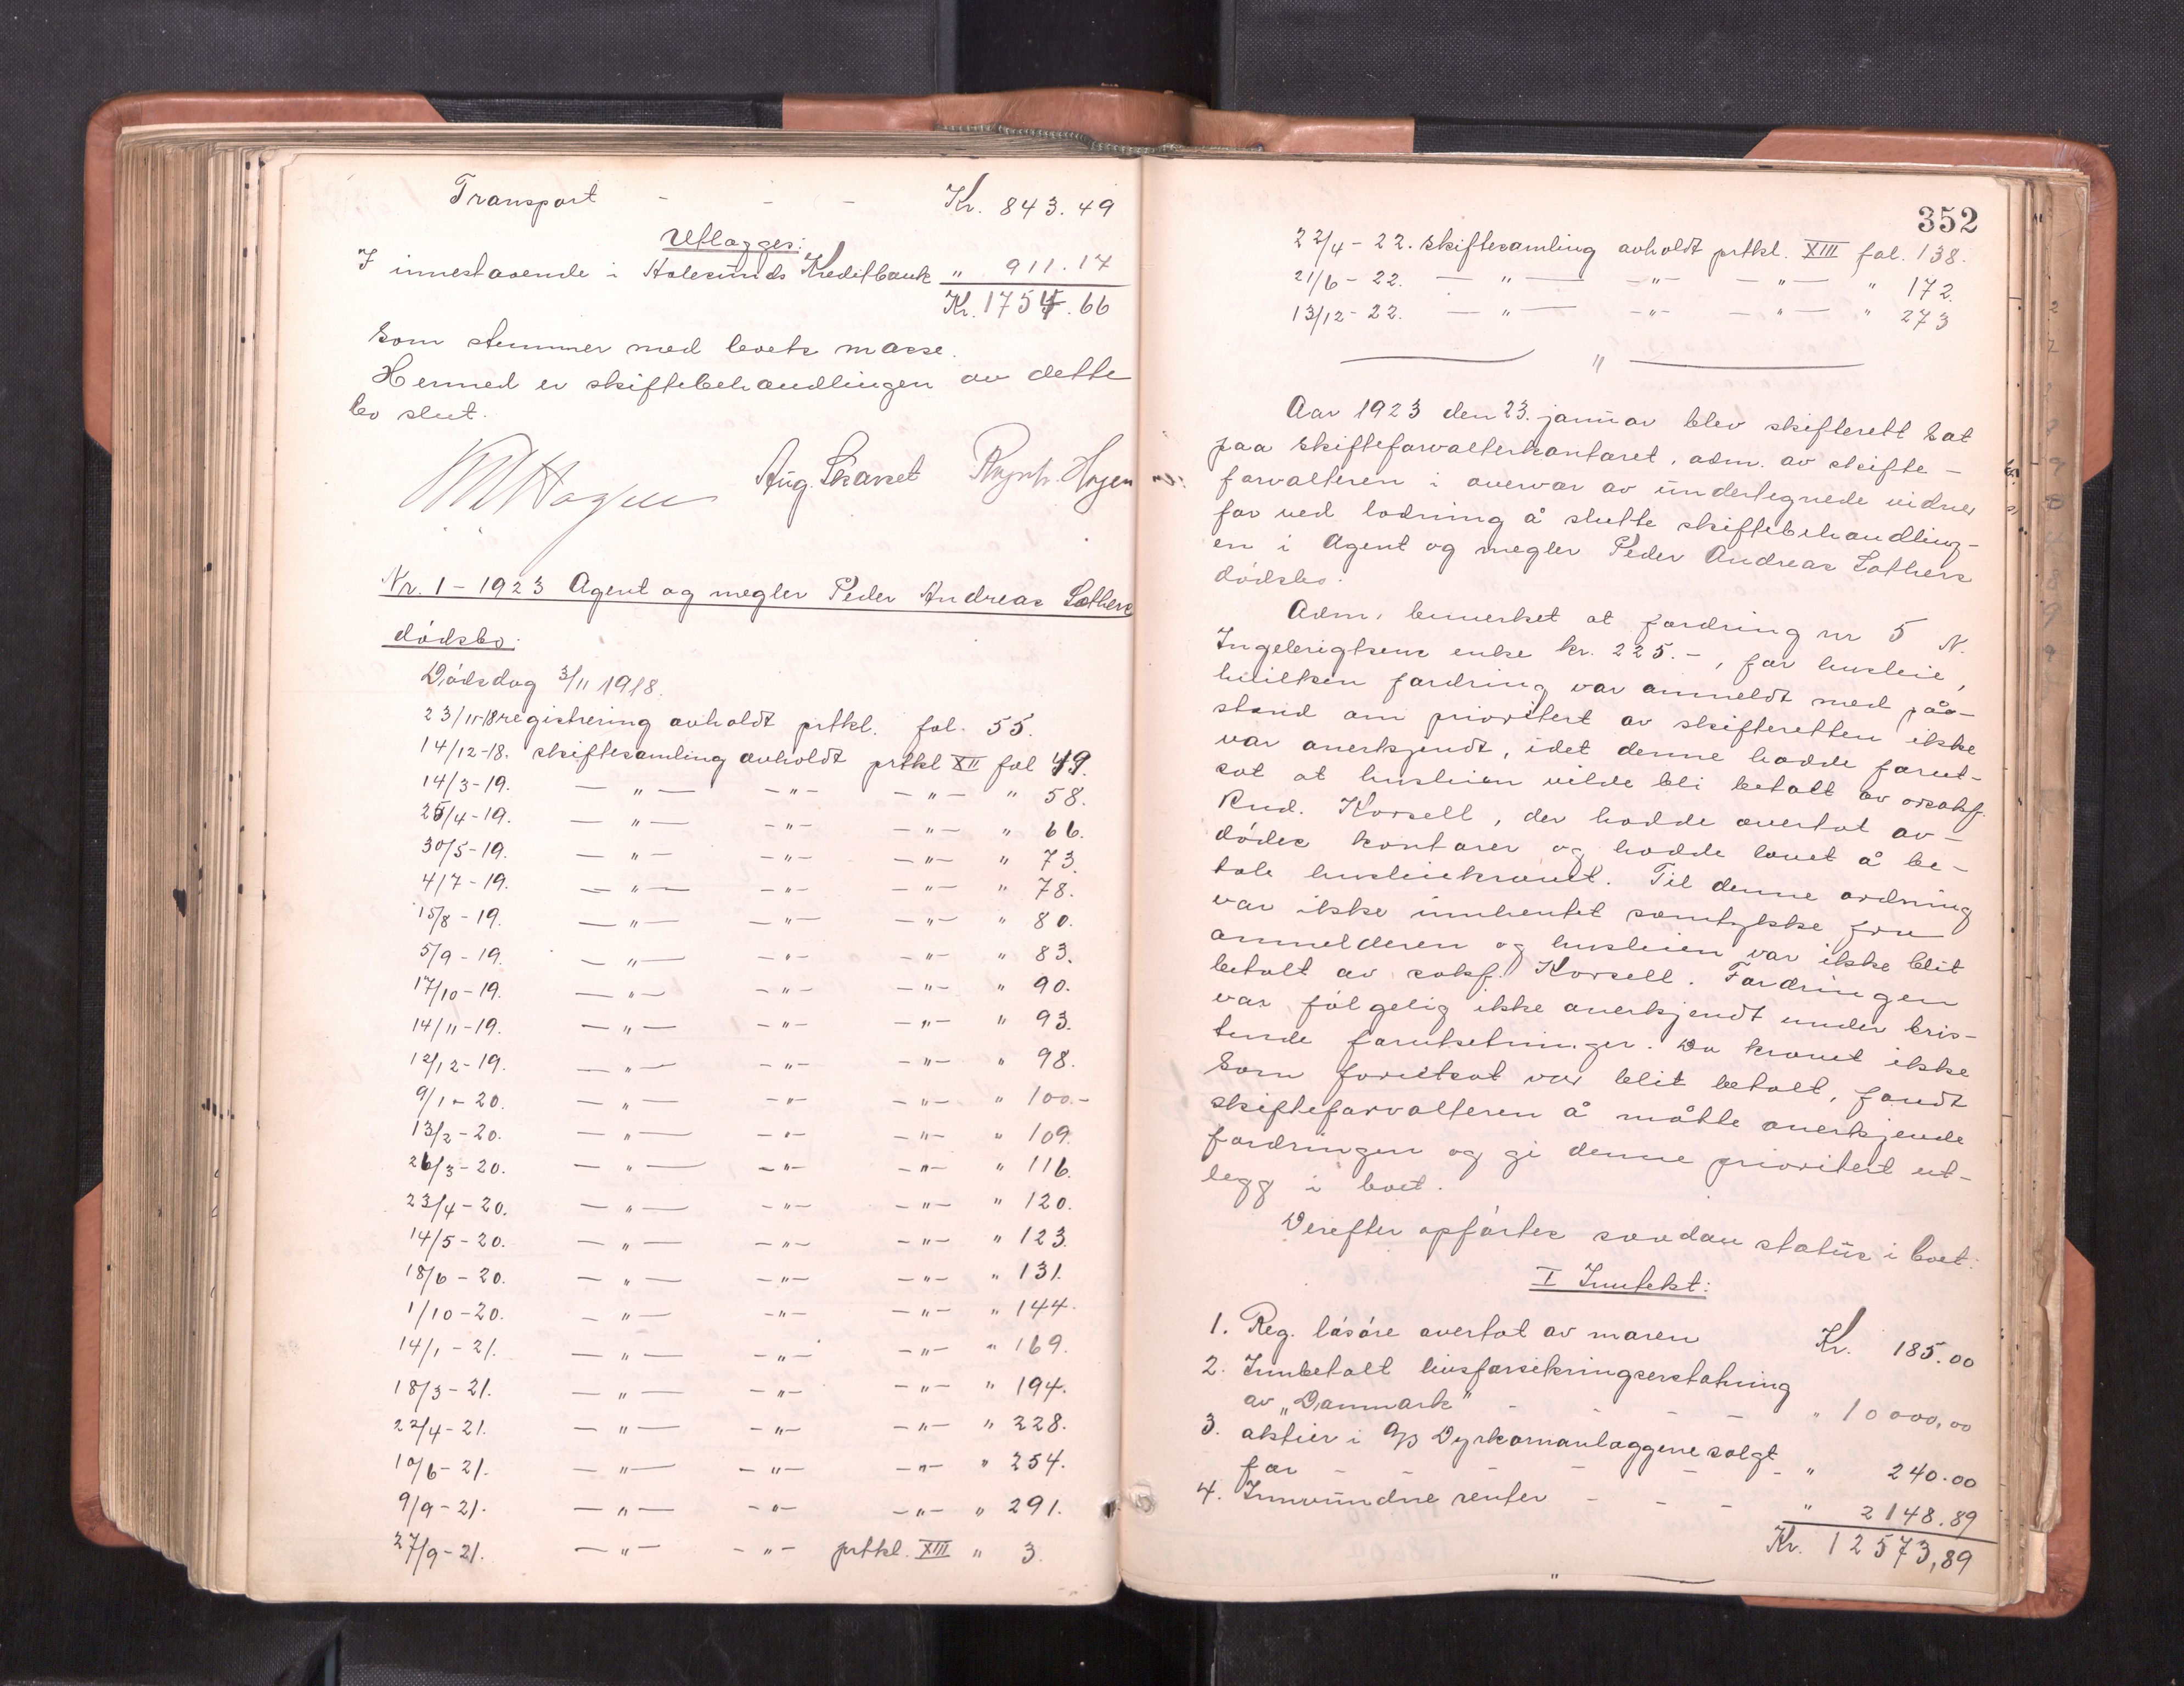 Transport - - - Kr. 843.49
Utlagges:
I innestaaende i Aalesunds Kreditbank " 911.17
Kr. 1754.66
som stemmer med boets masse.
Hermed er skiftebehandlingen av dette
bo slut.
Aug. Skarset
Nr. 1 - 1923 Agent og megler Peder Andreas Sæthers
dødsbo.
Dødsdag 3/11 1918.
23/11-18 registrering avholdt prtkl. fol. 55.
14/12-18. skiftesamling avholdt prtkl XII fol 49.
14/3-19. — " — — " — — " — " 58.
25/4-19. — " — — " — — " — " 66.
30/5-19. — " — — " — — " — " 73.
4/7-19. — " — — " — — " — " 78.
15/8-19. — " — — " — — " — " 80.
5/9-19. — " — — " — — " — " 83.
17/10-19. — " — — " — — " — " 90.
14/11-19. — " — — " — — " — " 93.
12/12-19. — " — — " — — " — " 98.
9/1-20. — " — — " — — " — " 100.-
13/2-20. — " — — " — — " — " 109.
26/3-20. — " — — " — — " — " 116.
23/4-20. — " — — " — — " — " 120.
14/5-20. — " — — " — — " — " 123.
18/6-20. — " — — " — — " — " 131.
1/10-20. — " — — " — — " — " 144.
14/1-21. — " — — " — — " — " 169.
18/3-21. — " — — " — — " — " 194.
22/4-21. — " — — " — — " — " 228.
10/6-21. — " — — " — — " — " 254.
9/9-21. — " — — " — — " — " 291.
27/9-21. — " — — " — prtkl. XIII " 3.
352
22/4-22. skiftesamling avholdt prtkl. XIII fol. 138.
21/6-22. — " — — " — — " — " 172.
13/12-22. — " — — " — — " — " 273
— " —
Aar 1923 den 23. januar blev skifterett sat
paa skifteforvalterkontoret, adm. av skifte-
forvalteren i overvær av undertegnede vidner
for ved lodning å slutte skiftebehandling-
en i Agent og megler Peder Andreas Sæthers
dødsbo.
Adm. bemerket at fordring nr 5 N.
Ingebrigtsens enke kr. 225.-, for husleie,
hvilken fordring var anmeldt med på-
stand om prioritert av skifteretten ikke
var anerkjendt, idet denne hadde forut-
sat at husleien vilde bli betalt av orsakf.
Rud. Korsell, der hadde overtat av-
dødes kontorer og hadde lovet å be-
tale husleiekravet. Til denne ordning
var ikke innhentet samtykke fra
anmelderen og husleien var ikke blit
betalt av sakf. Korsell. Fordringen
var følgelig ikke anerkjendt under bris-
tende forutsetninger. Da kravet ikke
som forutsat var blit betalt, fandt
skifteforvalteren å måtte anerkjende
fordringen og gi denne prioritert ut-
legg i boet.
Derefter opførtes saadan status i boet:
I Inntekt:
1. Reg. løsøre overtat av maren Kr. 185.00
2. Innbetalt livsforsikringserstatning
av „Danmark" - - - - " 10 000,00
3. aktier i A/S Dyrkornanlæggene solgt
for - - - - - " 240.00
4. Innvundne renter - - - " 2148.89
Kr. 12573,89